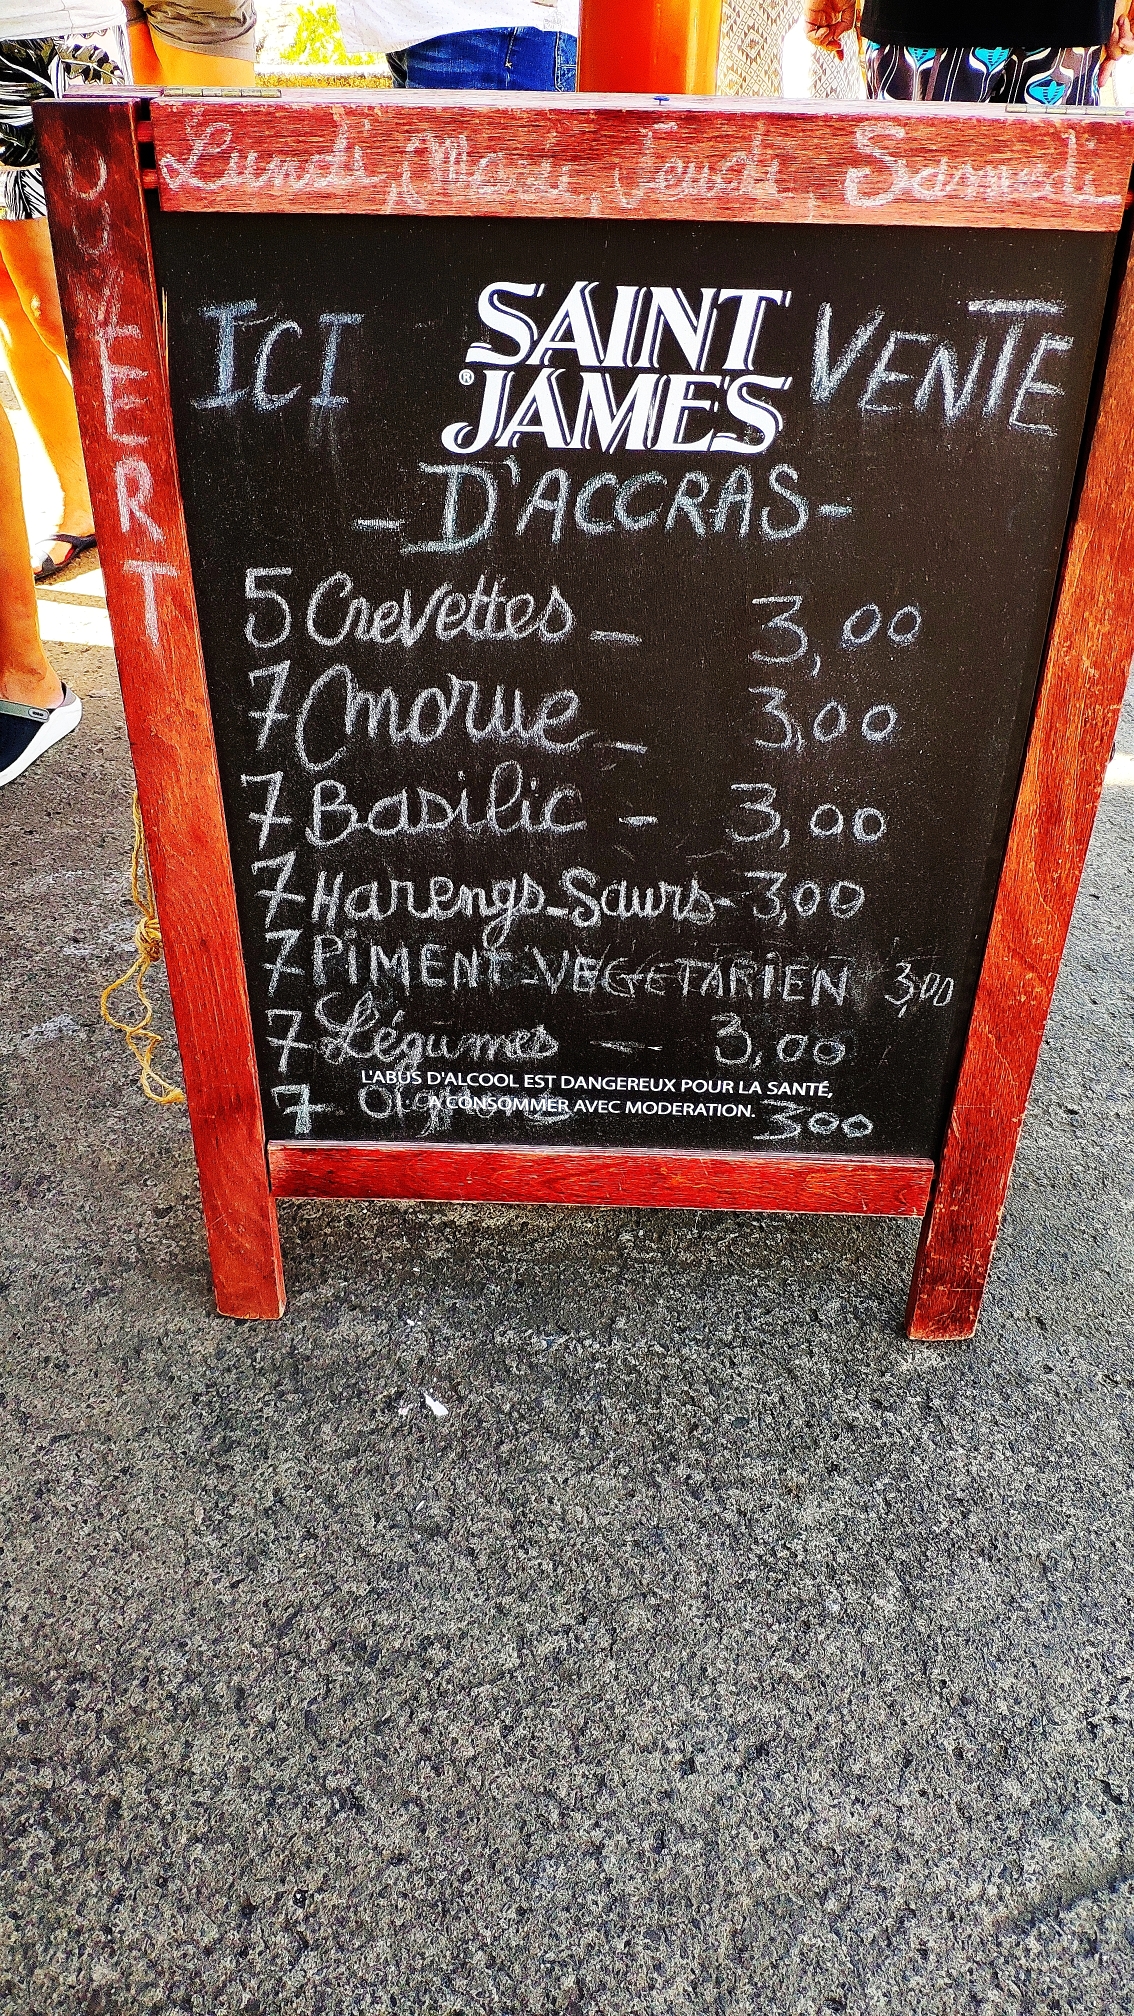 Lundi, Mardi, Jeudi, Samedi
OUVERT
ICI SAINT JAMES® VENTE
- D'ACCRAS -
5 Crevettes - 3,00
7 morue - 3,00
7 Basilic - 3,00
7 Harengs-Saurs - 3,00
7 PIMENT-VEGETARIEN 3,00
7 Légumes -- 3,00
L'ABUS D'ALCOOL EST DANGEREUX POUR LA SANTÉ,
A CONSOMMER AVEC MODERATION.
7 300